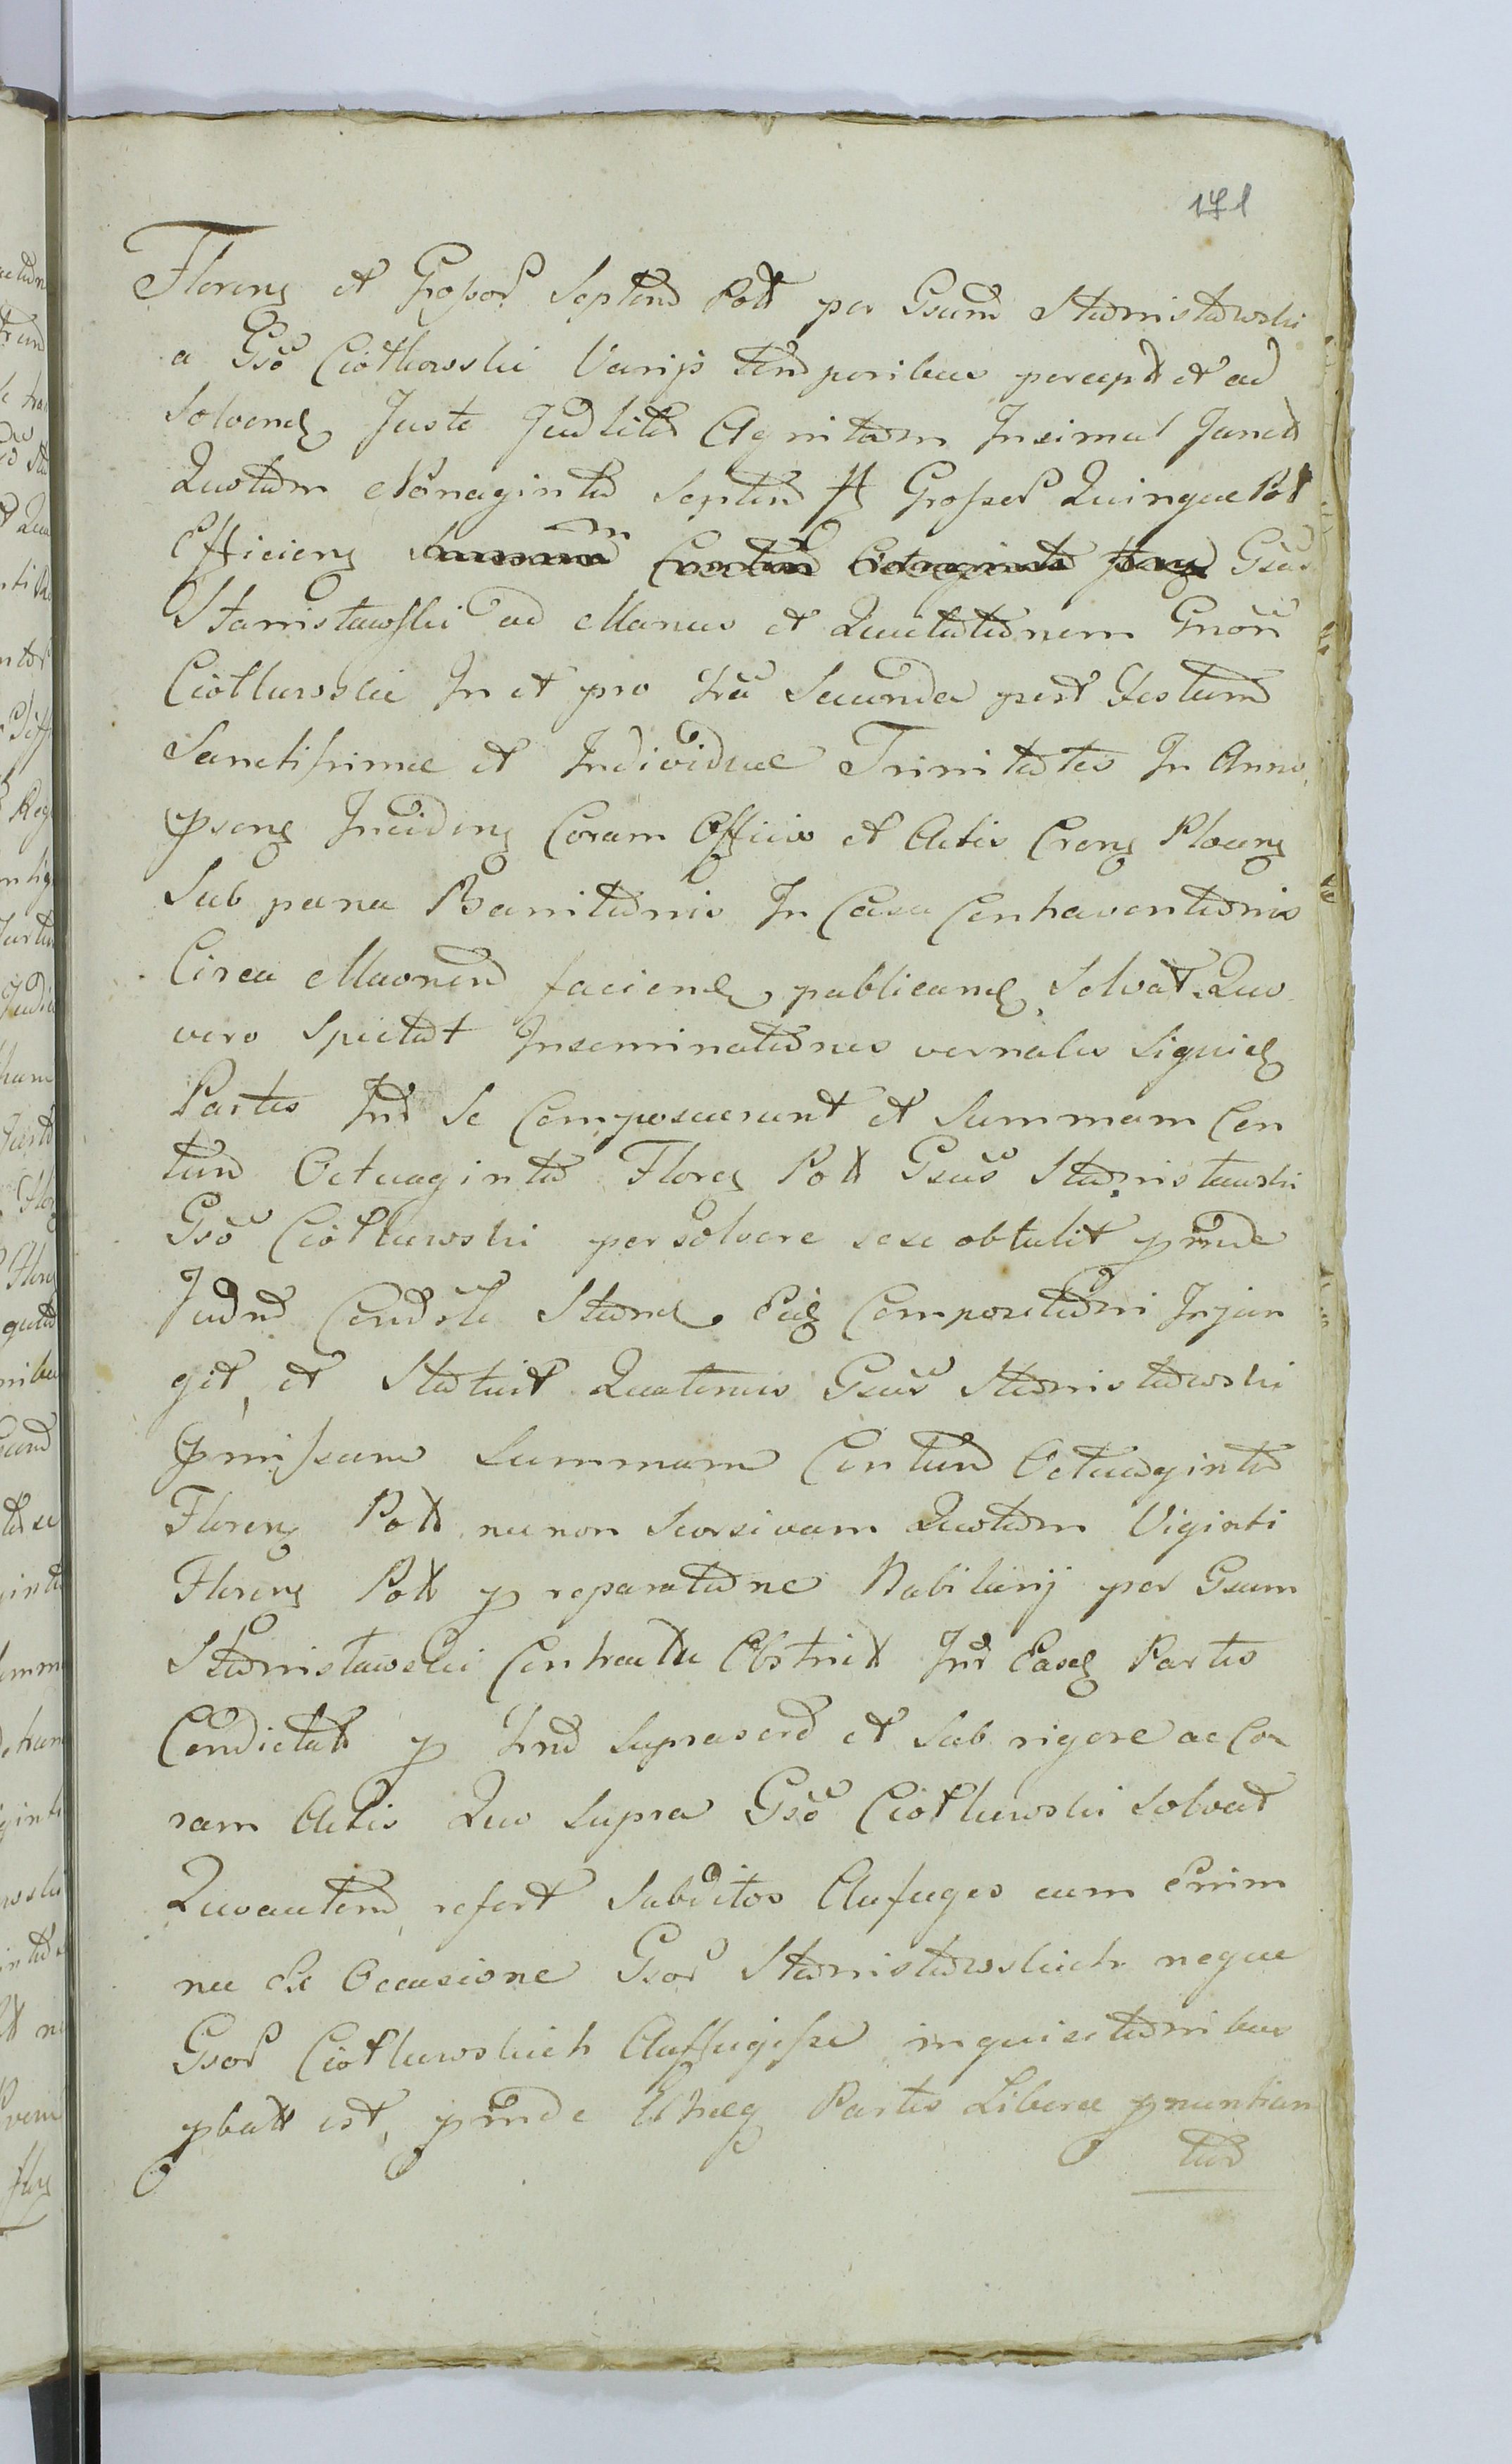 171
Floreng et Grossor Septem Poll per Gsum Stanisławski
a Gso Ciółkowski Varijs temporibus percept et ad
solvend Juste Judlite Agnitam Insimul Junct
Quotam Nonaginta Septem ff Grosser Quinque Poll
Efficieng Summam Centum Gsus
Stanisławski ad Manus et Quietationem Gnosi
Ciółkowski In et pro fria Secunda post Festum
Sanctissimae et Individuae Trinitatis In Anno
pseng Incideng Coram Officio et Actis Creng Ploceng
Sub paena Banitionis In Casu Contraventionis
Circa Maonem faciend publicand Solvat. Quo
vero Spectat Inseminationes vernales siquid
Partes Intr Se Composuerunt et Summam Cen
tum Octuaginta Floreg Poll Gsus Stanisławski
Gso Ciółkowski persolvere sese obtulit pinde
Judm Cendrle Stand Eid Compositioni Injun
git, et Statuit Quatenus Gsus Stanisławski
pmissam Summam Centum Octuaginta
Floreng Poll necnon Seorsivam Quotam Viginti
Floreng Poll p reparatione Nabilinij per Gsum
Stanisławski Contractu Obstrict Intr Easd Partes
Condictatt p Trm Suprascrd et Sub rigore ac Co
ram Actis Quo Supra Gso Ciółkowski Solvat
Quoautem refert Subditos Aufugos cum Enim
nec Ex Occasione Gsor Stanisławskich neque
Gsor Ciółkowskich Auffugisse inquisitionibus
pbatt est, pinde Utraeq Partes Liberae pnuntian
tur